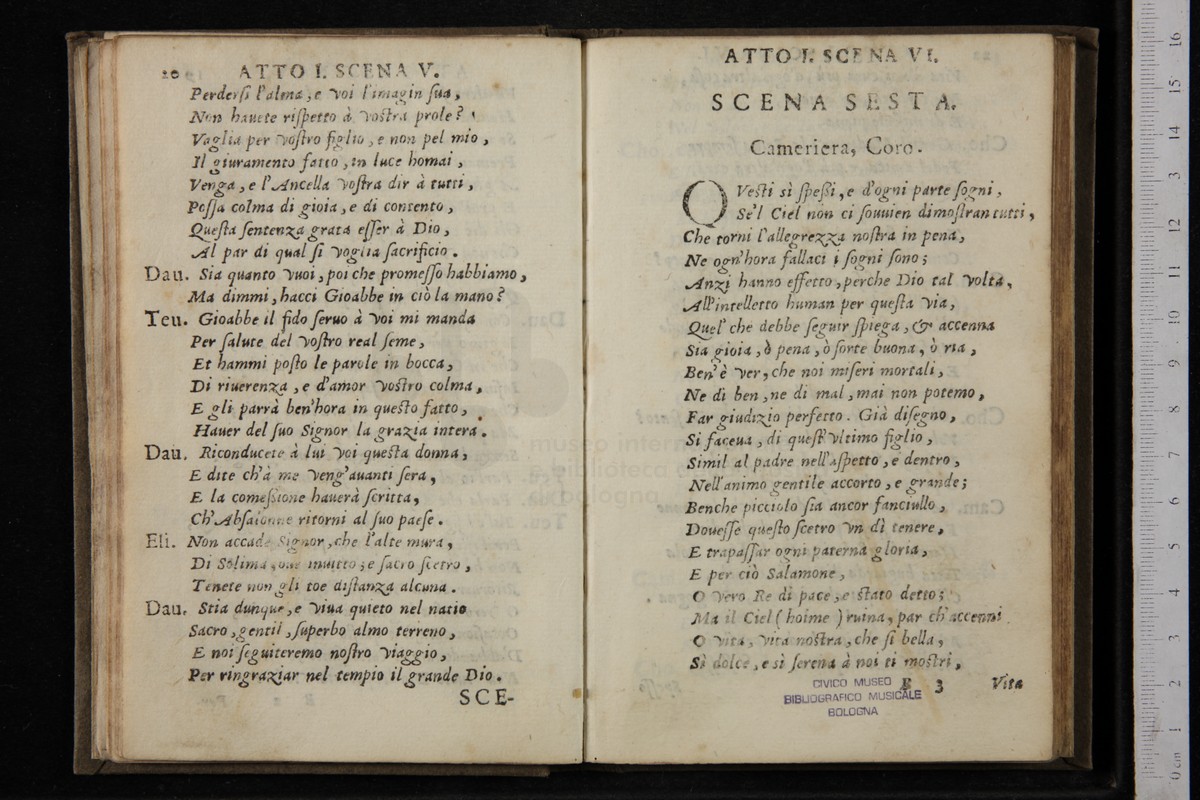 20 ATTO I. SCENA V.
Perdersi l'alma, e voi l'imagin sua,
Non hauete rispetto à vostra prole?
Vaglia per vostro figlio, e non pel mio,
Il giuramento fatto, in luce homai,
Venga, e l'Ancella vostra dir à tutti,
Possa colma di gioia, e di contento,
Questa sentenza grata esser à Dio,
Al par di qual si voglia sacrificio.
Dau. Sia quanto vuoi, poi che promesso habbiamo,
Ma dimmi, hacci Gioabbe in ciò la mano?
Teu. Gioabbe il fido seruo à voi mi manda
Per salute del vostro real seme,
Et hammi posto le parole in bocca,
Di riuerenza, e d'amor vostro colma,
E gli parrà ben'hora in questo fatto,
Hauer del suo Signor la grazia intera.
Dau. Riconducete à lui voi questa donna,
E dite ch'à me veng'auanti sera,
E la comessione hauerà scritta,
Ch'Absalonne ritorni al suo paese.
Eli. Non accade Signor, che l'alte mura,
Di Solima, oue inuitto, e sacro scetro,
Tenete non gli toe distanza alcuna.
Dau. Stia dunque, e viua quieto nel natio
Sacro, gentil, superbo almo terreno,
E noi seguiteremo nostro viaggio,
Per ringraziar nel tempio il grande Dio.
SCE-
ATTO I. SCENA VI.
SCENA SESTA.
Cameriera, Coro.
Questi sì spessi, e d'ogni parte sogni,
Se'l Ciel non ci souuien dimostran tutti,
Che torni l'allegrezza nostra in pena,
Ne ogn'hora fallaci i sogni sono;
Anzi hanno effetto, perche Dio tal volta,
All'intelletto human per questa via,
Quel' che debbe seguir spiega, & accenna
Sia gioia, ò pena, ò sorte buona, ò ria,
Ben'è ver, che noi miseri mortali,
Ne di ben, ne di mal, mai non potemo,
Far giudizio perfetto. Già disegno,
Si faceua, di quest'vltimo figlio,
Simil al padre nell'aspetto, e dentro,
Nell'animo gentile accorto, e grande;
Benche picciolo sia ancor fanciullo,
Douesse questo scetro vn dì tenere,
E trapassar ogni paterna gloria,
E per ciò Salamone,
O vero Re di pace, e stato detto;
Ma il Ciel (hoime) ruina, par ch'accenni
O vita, vita nostra, che sì bella,
Sì dolce, e sì serena à noi ti mostri,
E 3 Vita
CIVICO MUSEO
BIBLIOGRAFICO MUSICALE
BOLOGNA